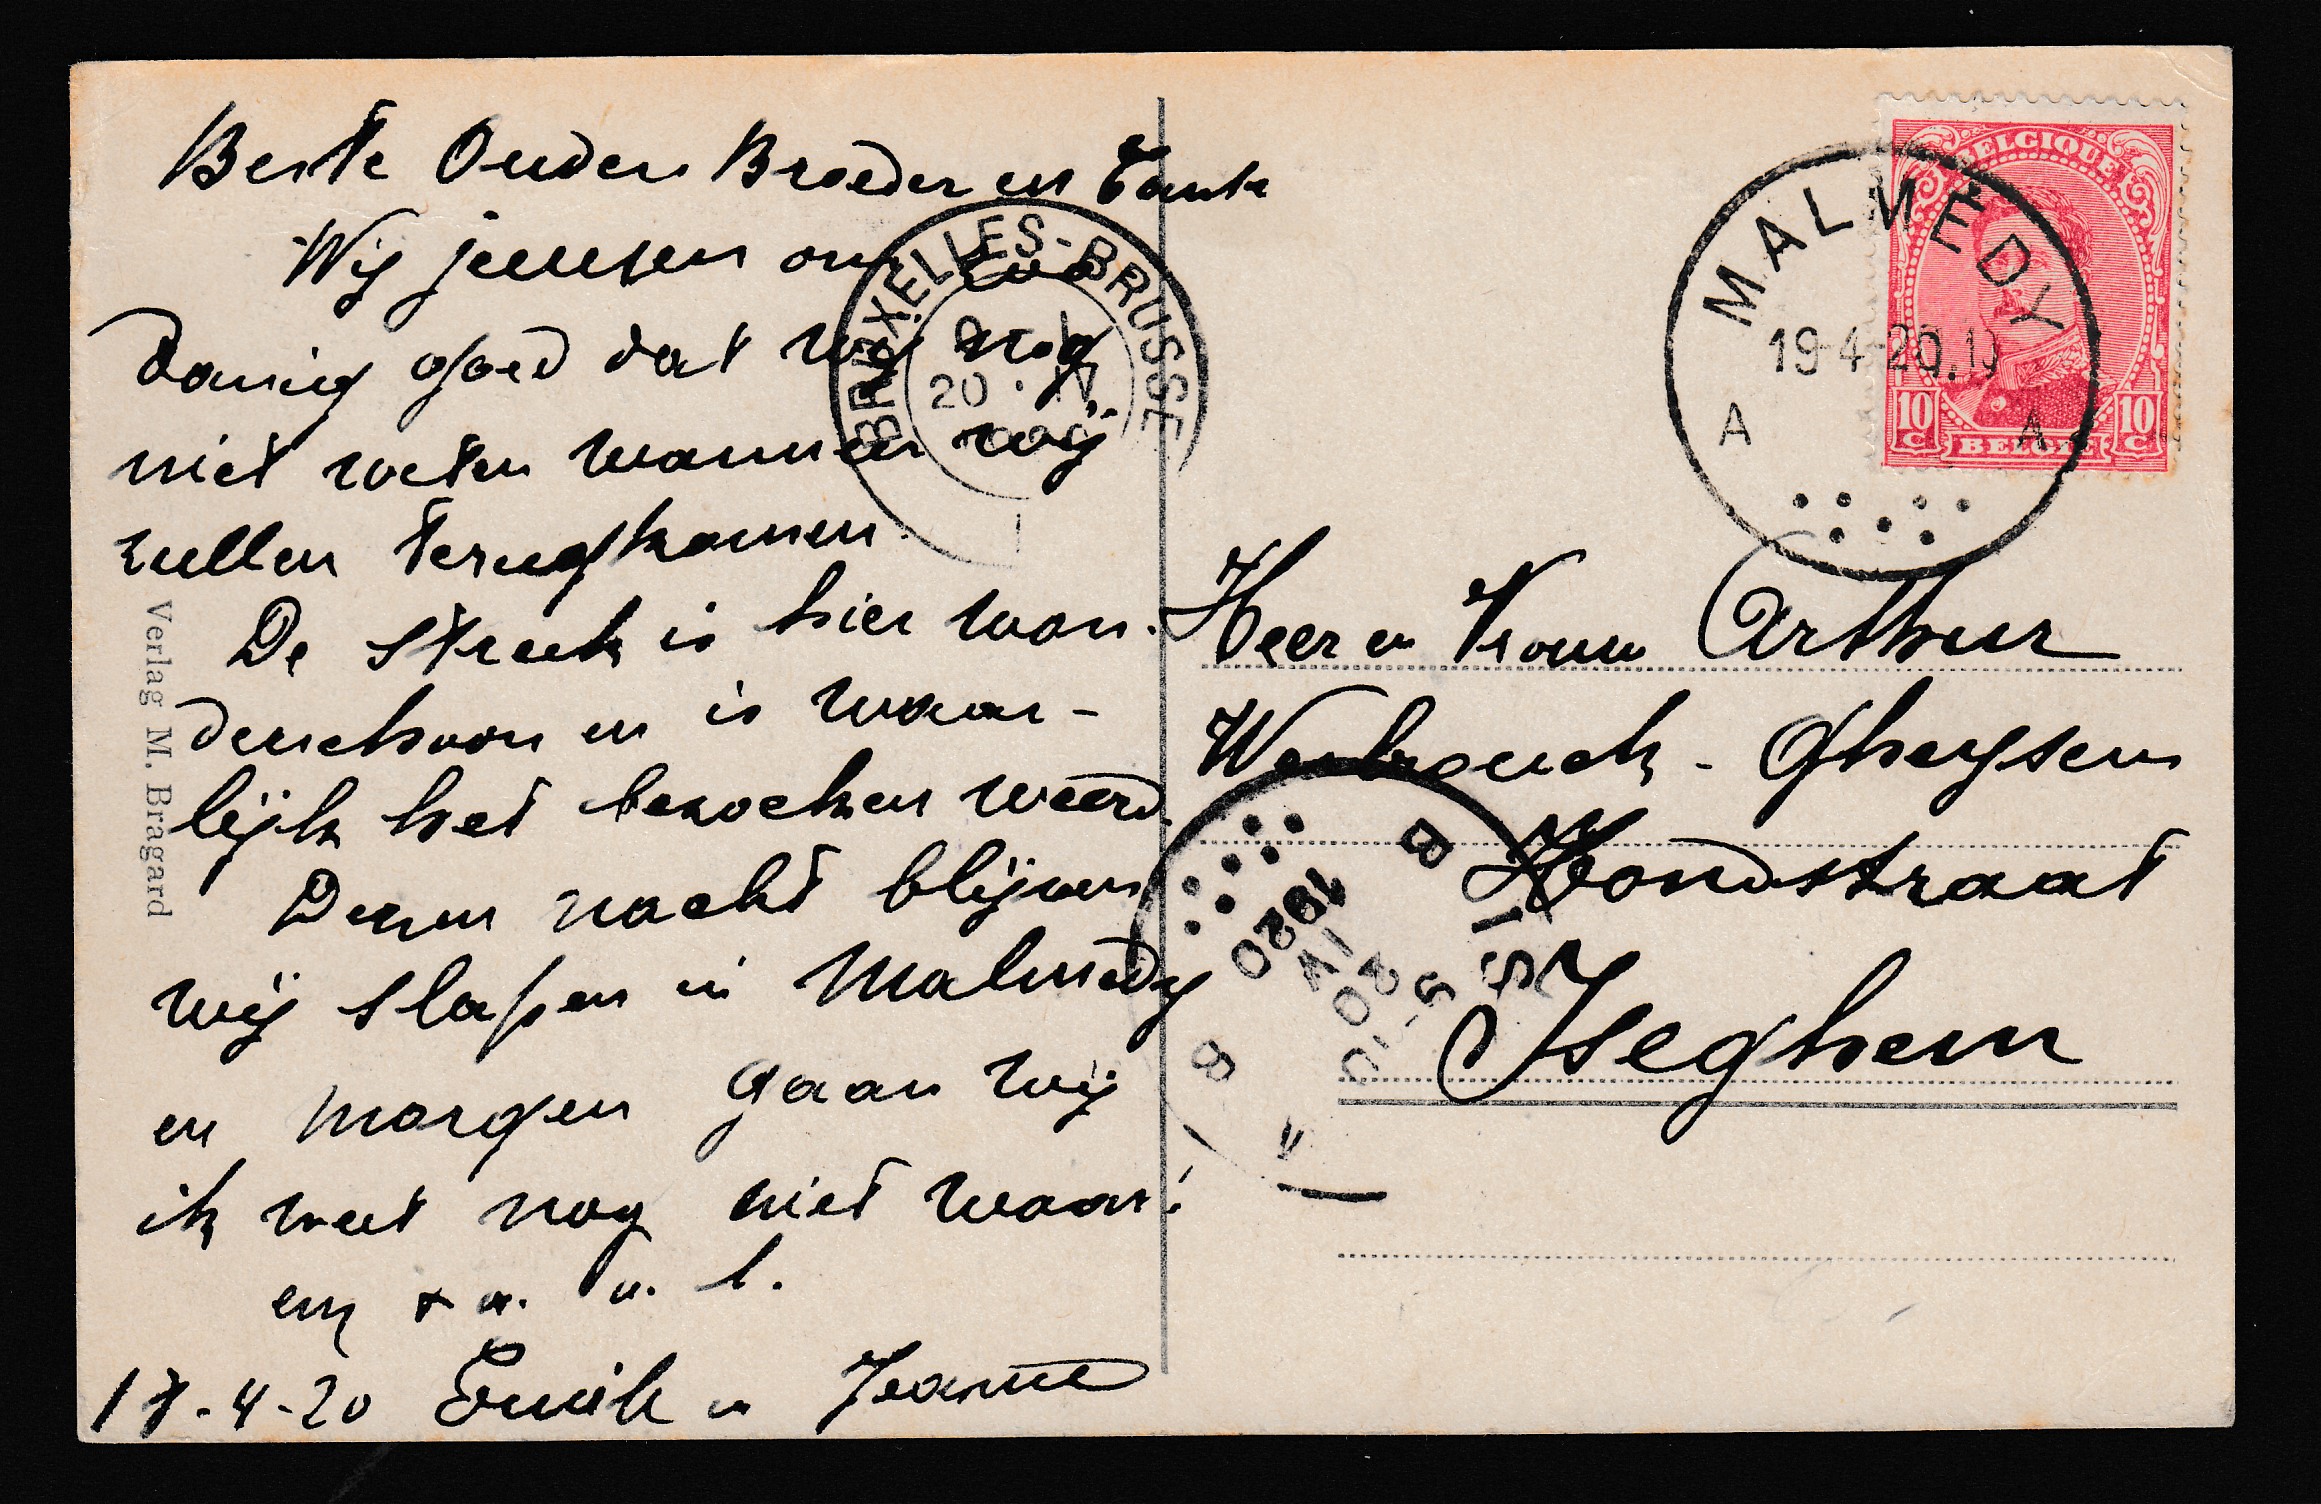 Beste Ouders Broeder en Tante
Wij jeunen ons zoo
danig goed dat wij nog
niet weten wanneer wij
zullen terugkomen.
De streek is hier won-
derschoon en is waar-
lijk het bezoeken weerd.
Dezen nacht blijven
wij slapen in Malmedy
en morgen gaan wij
ik weet nog niet waar!
en
-4-20 Emiel en Jeanne
Verlag M. Bragard
BRUXELLES-BRUSSEL
20 · IV
BELGIQUE
10 C
10 C
BELGIE
MALMEDY
19-4-20.
A A
Heer en Vrouw Arthur
Werbrouck - Gheysens
Hondstraat
Iseghem
20
IV
1920
B